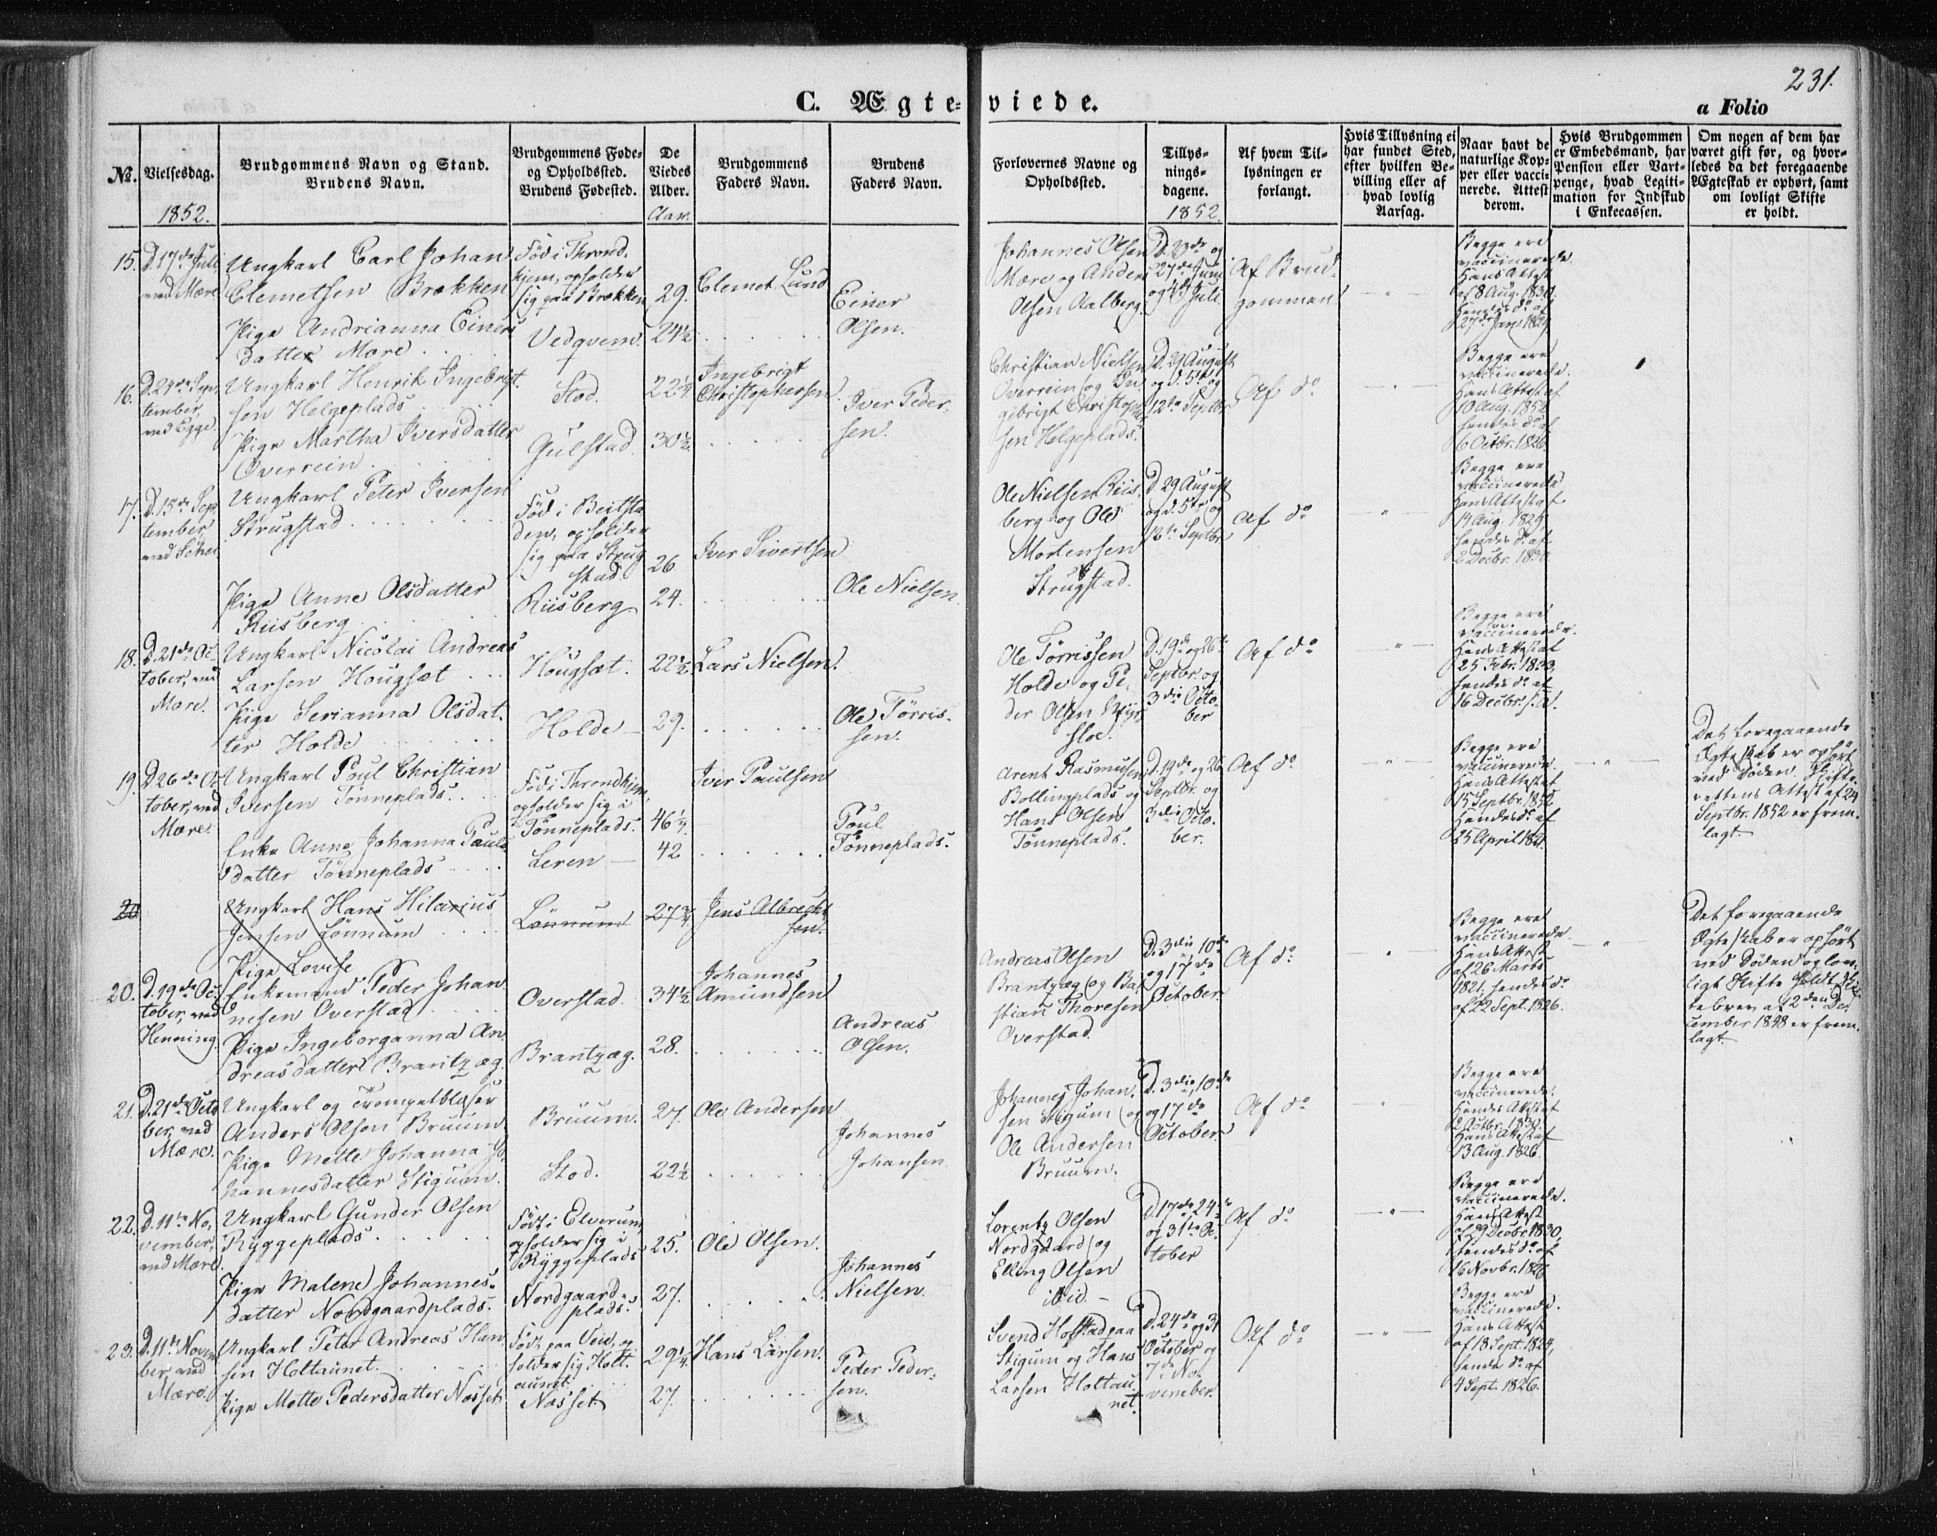 231.
C. Ægteviede.
a Folio
№.
Vielsesdag.
Brudgommens Navn og Stand.
Brudens Navn.
Brudgommens Føde-
og Opholdssted.
Brudens Fødested.
De
Viedes
Alder.
Brudgommens
Faders Navn.
Brudens
Faders Navn.
Forlovernes Navne og
Opholdssted.
Tillys-
nings-
dagene.
Af hvem Til-
lysningen er
forlangt.
Hvis Tillysning ei
har fundet Sted,
efter hvilken Be-
villing eller af
hvad lovlig
Aarsag.
Naar havt de
naturlige Kop-
per eller vacci-
nerede. Attest
derom.
Hvis Brudgommen
er Embedsmand, har
Pension eller Vart-
penge, hvad Legiti-
mation for Indskud
i Enkecassen.
Om nogen af dem har
været gift før, og hvor-
ledes da det foregaaende
Ægteskab er ophørt, samt
om lovligt Skifte
er holdt.
1852.
Aar.
1852.
15.
D. 17de Juli
ved Mære
Ungkarl Carl Johan
Clemetsen Brækken
Pige Andrianna Einers
datter Mære
Fød i Thrond-
hjem, opholder
sig paa Brækken
Vedqvem.
29.
24½
Clemet Lund
Einer
Olsen.
Johannes Olsen
Mære og Anders
Olsen Aalberg.
D. 20de og
27de Juni
og 4de Juli
Af Brud-
gommen
Begge ere
vaccinerede.
Hans Attest
af 8 Aug. 1830.
Hendes do af
27de Janv. 1829
16.
D. 24de Sep-
tember,
ved Egge.
Ungkarl Henrik Ingebrigt-
sen Helgeplads
Pige Martha Iversdatter
Overrein
Stod.
Gulstad.
22¼
30½
Ingebrigt
Christophersen
Iver Peder-
sen.
Christian Nielsen
Overrein og In-
gebrigt Christopher-
sen Helgeplads.
D. 29 August
og d. 5te og
12te Septbr
Af do
Begge ere
vaccinerede.
Hans Attest af
10 Aug. 1852
hendes do af
6 Octbr. 1826.
17.
D. 15de Sep-
tember
ved
Ungkarl Peter Iversen
Strugstad
Pige Anne Olsdatter
Riisberg
Fød i Beitsta-
den, opholder
sig paa Strug-
stad.
Riisberg
26
24.
Iver Sivertsen
Ole Nielsen.
Ole Nielsen Riis-
berg og Ole
Mortensen
Strugstad.
D. 29 August
og d. 5te og
12te Septbr.
Af do
Begge ere
vaccinerede
Hans Attest af
14 Aug. 1829
hendes do af
2 Decbr. 1830.
18.
D. 21de Oc-
tober, ved
Mære.
Ungkarl Nicolai Andreas
Larsen Hougsæt
Pige Serianna Olsdat-
ter Holde
Hougsæt.
Holde
22½
29.
Lars Nielsen.
Ole Tørris-
sen.
Ole Tørrissen
Holde og Pe-
der Olsen
D. 19de og 26de
Septbr. og
3die Octo-
ber
Af do
Begge ere
vaccinerede.
Hans Attest af
25 Febr. 1833,
hendes do af
16 Decbr. s. A.
19.
D 26de Oc-
tober, ved
Mære.
Ungkarl Poul Christian
Iversen Tønneplads.
Enke Anne Johanna Pauls-
datter Tønneplads
Fød i Throndhjem,
opholder sig i
Tønneplads.
Leren
46¼
42
Iver Paulsen
Poul
Tønneplads.
Arent Rasmusen
Bollingplads og
Hans Olsen
Tønneplads.
D. 19de og 26
Septbr. og
3die Octo-
ber.
Af do
Begge ere
vaccinerede.
Hans Attest af
15 Septbr. 1852
Hendes do af
25 April 1821.
Det foregaaende
Ægteskab er ophørt
ved Døden. Skifte-
rettens Attest af 24
Septbr. 1852 er frem-
lagt.
20
Ungkarl Hans Hilarius
Jensen Lønnum
Pige Lovise
Lønnum
27¾
Jens Albrecht-
sen.
20.
D. 19de Oc-
tober, ved
Henning.
Enkemand Peder Johan-
nesen Overstad
Pige Ingeborganna An-
dreasdatter Brantzæg
Overstad.
Brantzæg.
34½
28.
Johannes
Amundsen
Andreas
Olsen.
Andreas Olsen
Brantzæg og Ba-
stian Thoresen
Overstad.
D. 3die 10de
og 17de
October.
Af do
Begge ere
vaccinerede.
Hans Attest
af 26 Marts
1821, hendes do
af 22 Sept. 1826.
Det foregaaende
Ægteskab er ophørt
ved Døden og lov-
ligt Skifte holdt. Skif-
tebrev af 2den De-
cember 1848 er frem-
lagt.
21.
D. 21de Octo-
ber, ved
Mære.
Ungkarl og Trompetblæser
Anders Olsen Bruum
Pige Mette Johanna Jo-
hannesdatter Stigum.
Bruum.
Stod.
27.
22½
Ole Andersen
Johannes
Johansen.
Johannes Johan-
sen Stigum og
Ole Andersen
Bruum.
D. 3die, 10de
og 17de
October.
Af do
Begge ere
vaccinerede.
Hendes Attest af
2 Octbr. 1830.
Hans Attest af
13 Aug. 1826.
22.
D. 11te No-
vember,
ved Mære
Ungkarl Gunder Olsen
Ryggeplads.
Pige Malene Johannes-
datter Nordgaardplads.
Født i Elverum,
opholder sig i
Ryggeplads
Nordgaard-
plads.
25.
27.
Ole Olsen.
Johannes
Nielsen.
Lorentz Olsen
Nordgaard og
Elling Olsen
ibid.
D. 17de, 24de
og 31te Oc-
tober
Af do
Begge ere
vaccinerede.
Hans Attest
af 29 Decbr. 1830,
hendes do af
16 Novbr. 1826
23.
D. 11te Novem-
ber, ved
Mære.
Ungkarl Peter Andreas Han-
sen Holtaunet.
Pige Mette Pedersdatter Næsset
Født paa Veie, op-
holder sig Holt-
aunet.
Næsset
29¼
27.
Hans Larsen.
Peder Peder-
sen.
Svend Hofstad paa
Stigum og Hans
Larsen Holtau-
net.
D. 24de og 31
October og
7de No-
vember.
Af do
Begge ere
vaccinerede.
Hans Attest
af 18 Sept. 1824,
hendes do af
4 Sept. 1826.